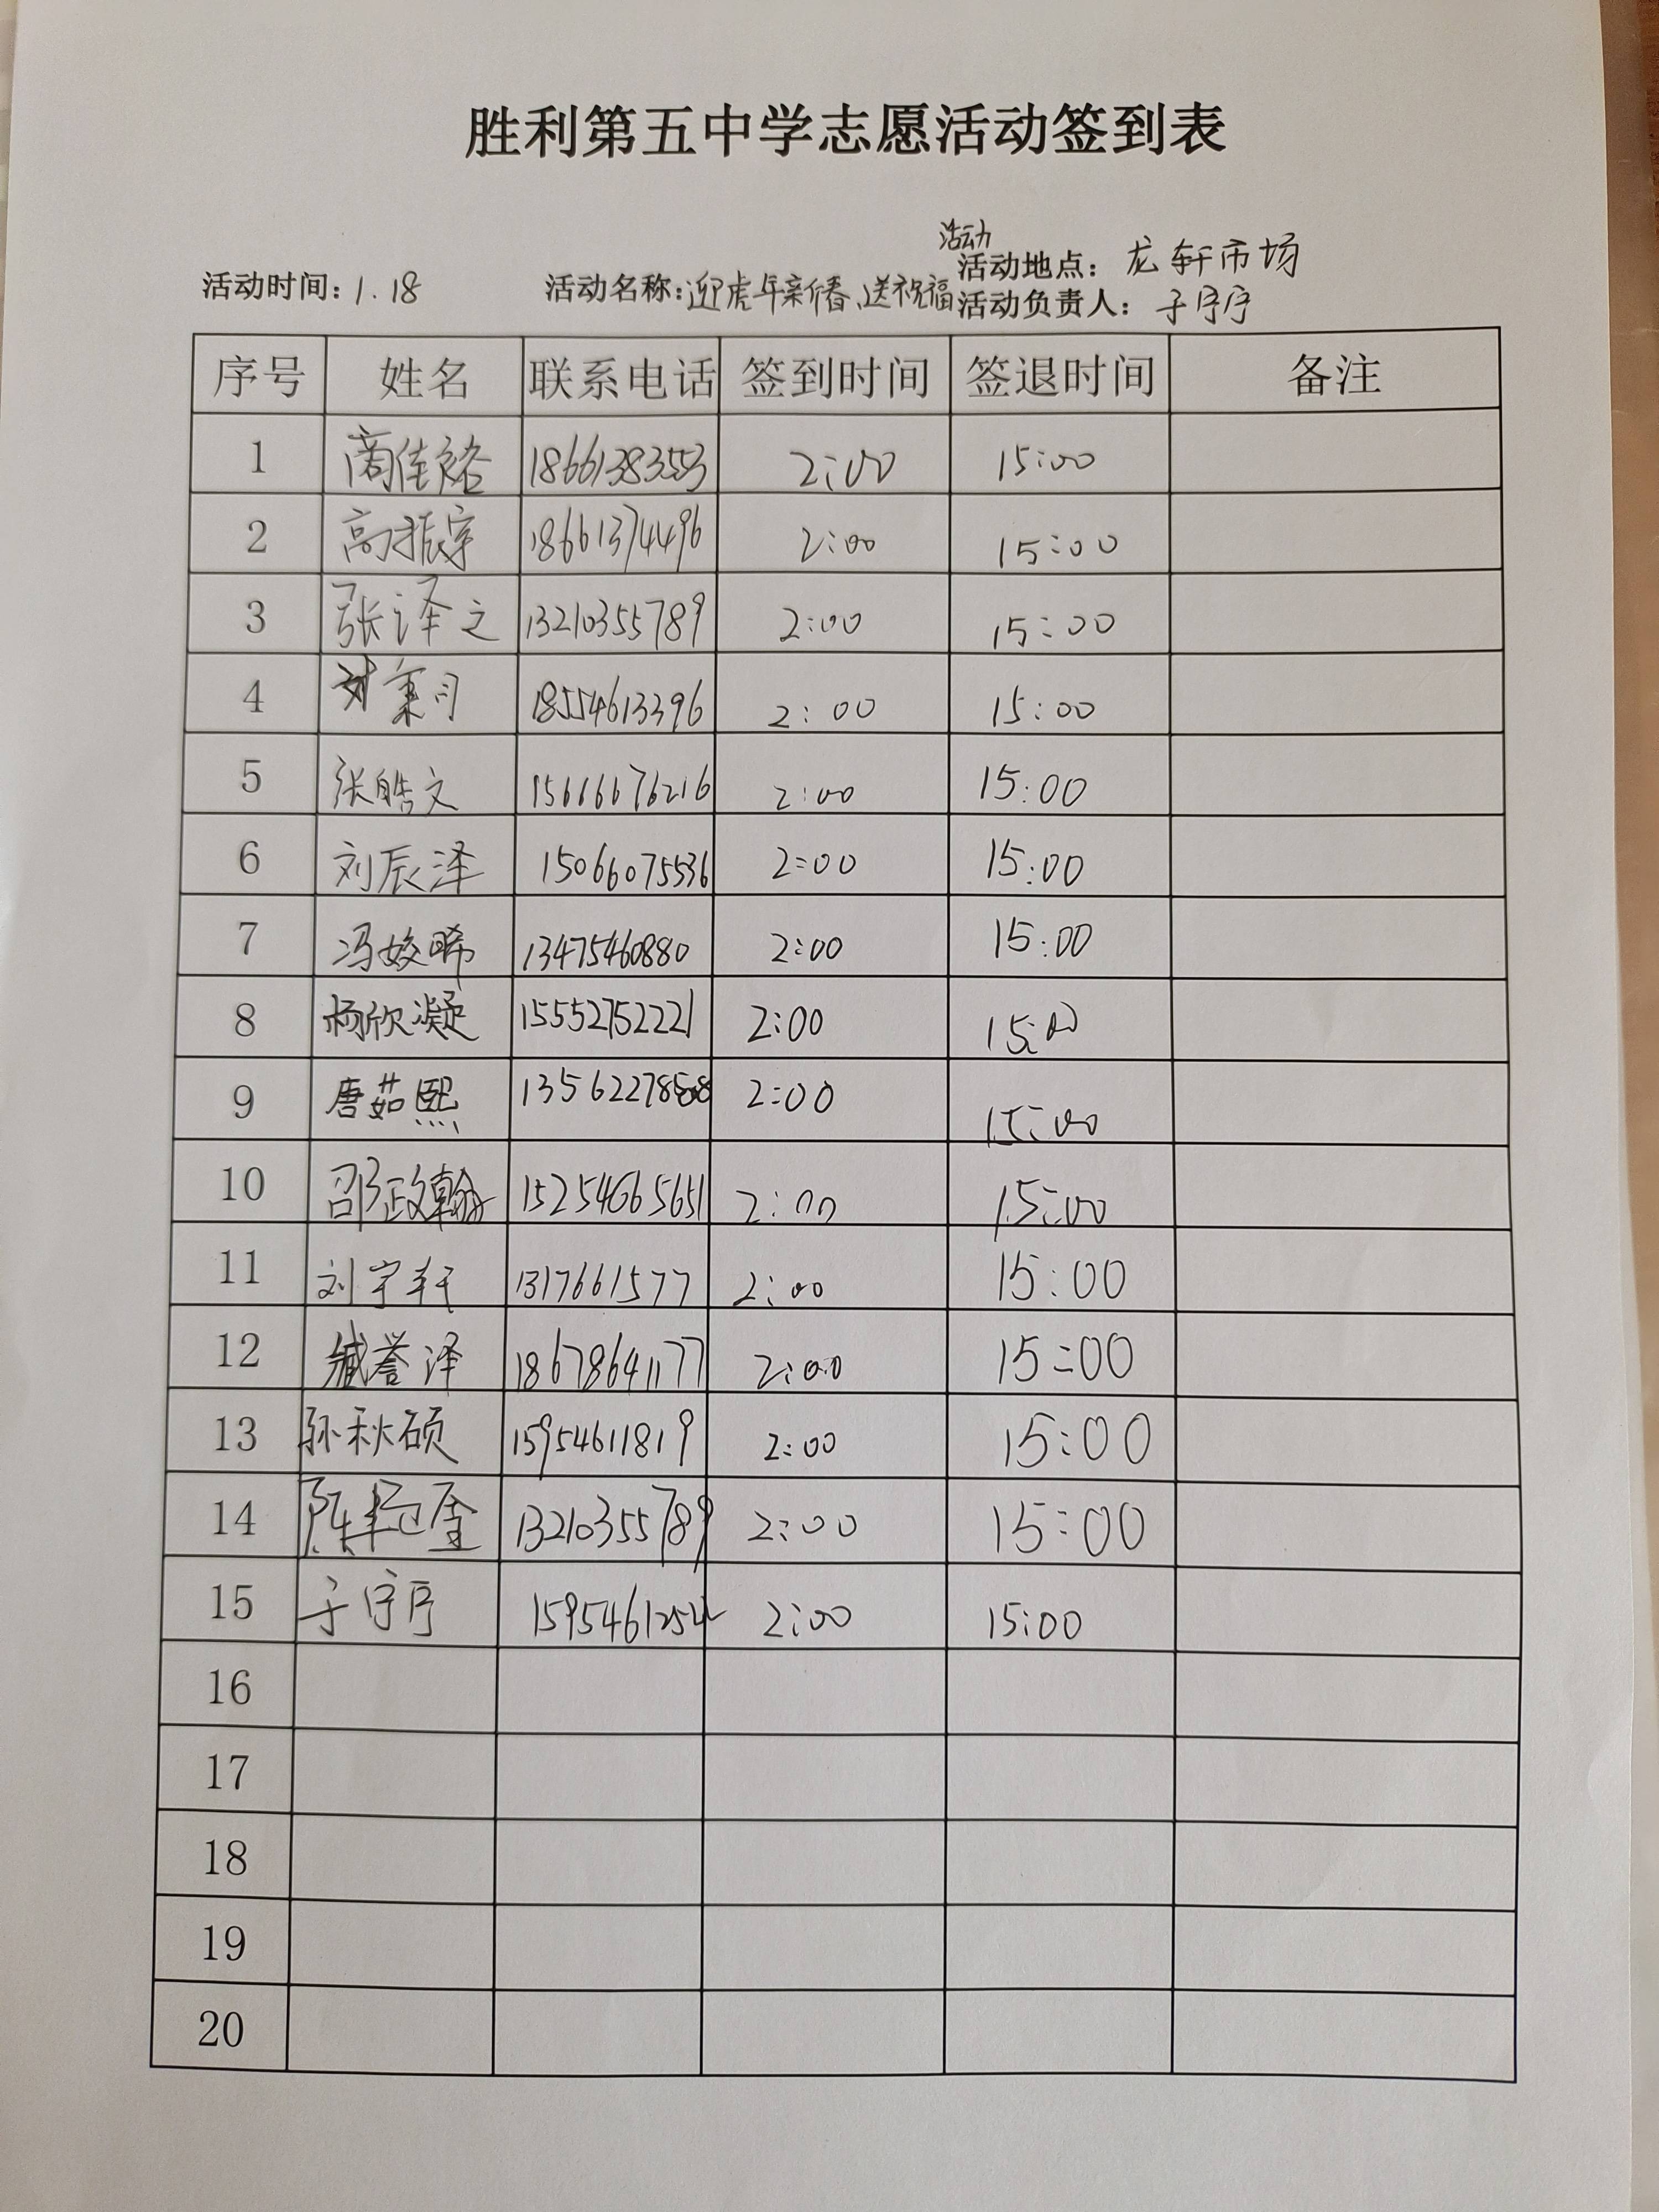 胜利第五中学志愿活动签到表
活动
活动时间：1.18 活动名称：迎虎年新春、送祝福 活动地点：龙轩市场
活动负责人：于序序
序号 姓名 联系电话 签到时间 签退时间 备注
1 商佳裕 18661383553 2:00 15:00
2 高振宇 18661374496 2:00 15:00
3 张泽之 13210355789 2:00 15:00
4 18554613396 2:00 15:00
5 张皓文 15666676216 2:00 15:00
6 刘辰泽 15066075536 2:00 15:00
7 冯姣晞 13475460880 2:00 15:00
8 杨欣凝 15552752221 2:00 15:00
9 唐茹熙 2:00 15:00
10 邵政翰 15254665651 2:00 15:00
11 刘宇轩 1317661577 2:00 15:00
12 臧誉泽 18678641177 2:00 15:00
13 孙秋硕 15954611819 2:00 15:00
14 13210355789 2:00 15:00
15 于序序 15954612542 2:00 15:00
16
17
18
19
20